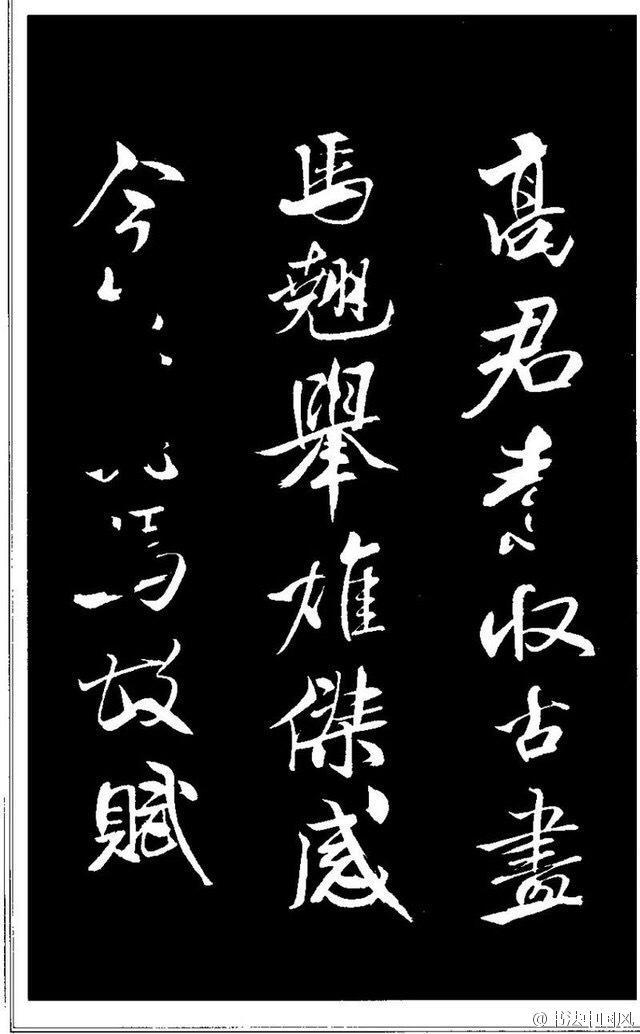 高君素收古畫
馬翹舉雄傑感
今馬故賦
@书法中国风